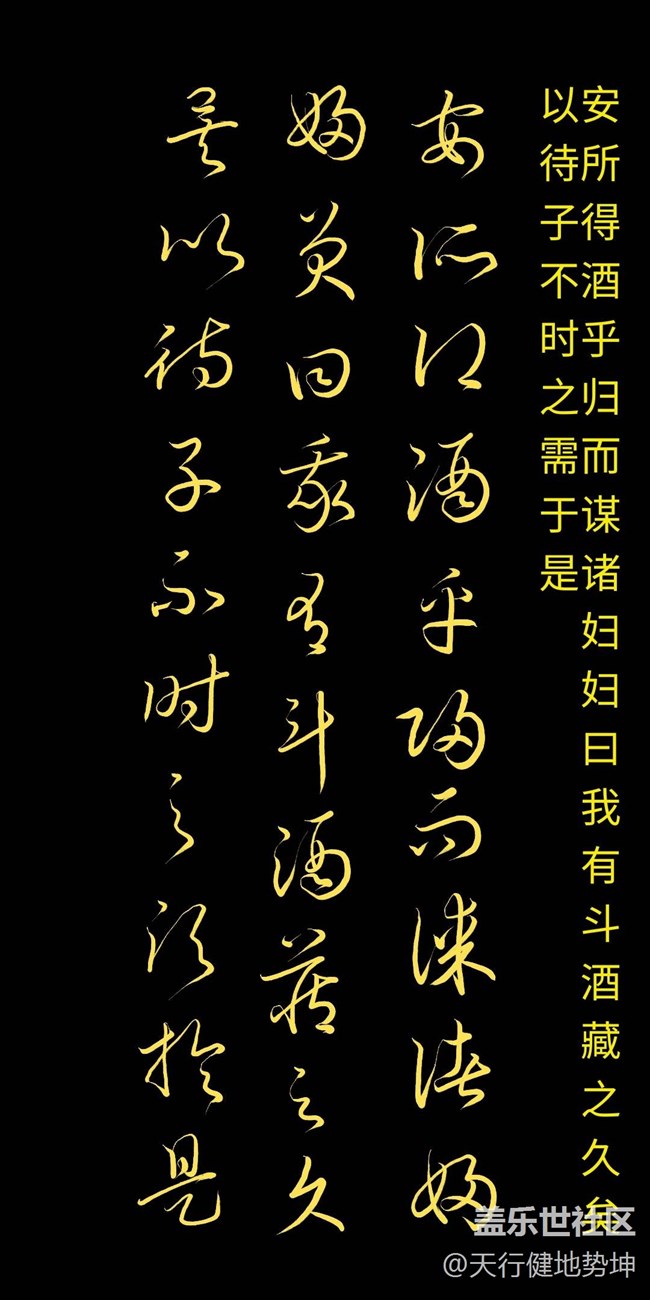 安所得酒乎归而谋诸妇妇曰我有斗酒藏之久矣
以待子不时之需于是
安所得酒乎歸而謀諸婦
婦曰我有斗酒藏之久
矣以待子不時之須於是
盖乐世社区
@天行健地势坤